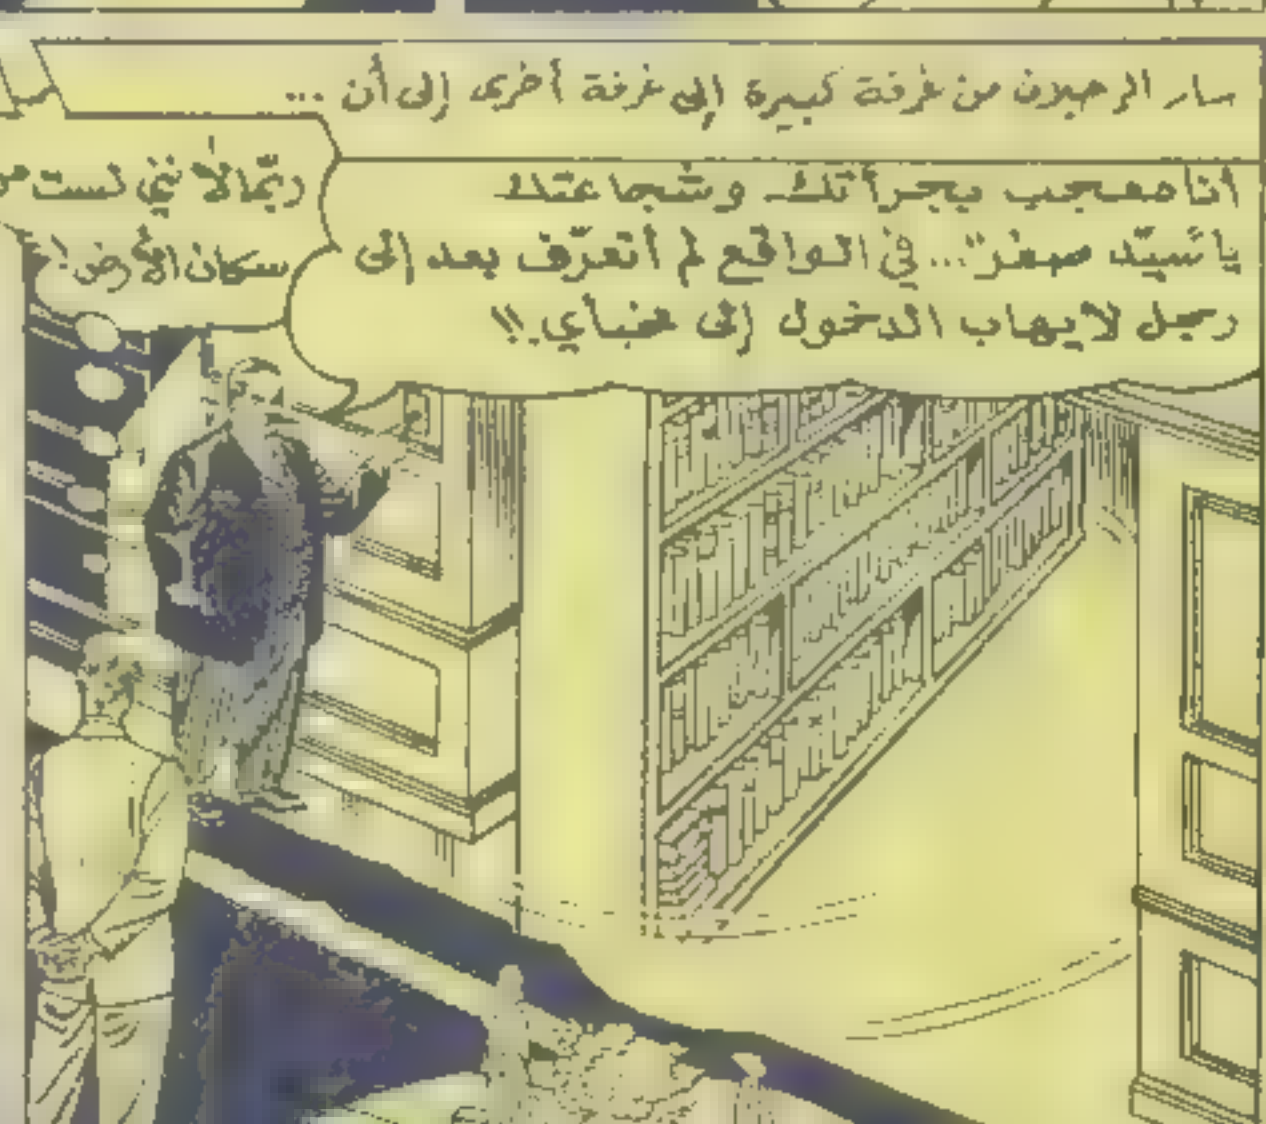 سار الرجلان من غرفة كبيرة إلى غرفة أخرى إلى أن ...
أنا معجب بجرأتك وشجاعتك
يا سيّد "صفر"... في الواقع لم أتعرّف بعد إلى
رجل لا يهاب الدخول إلى مخبأي !!
ربّما لأنني لست
سكان الأرض!